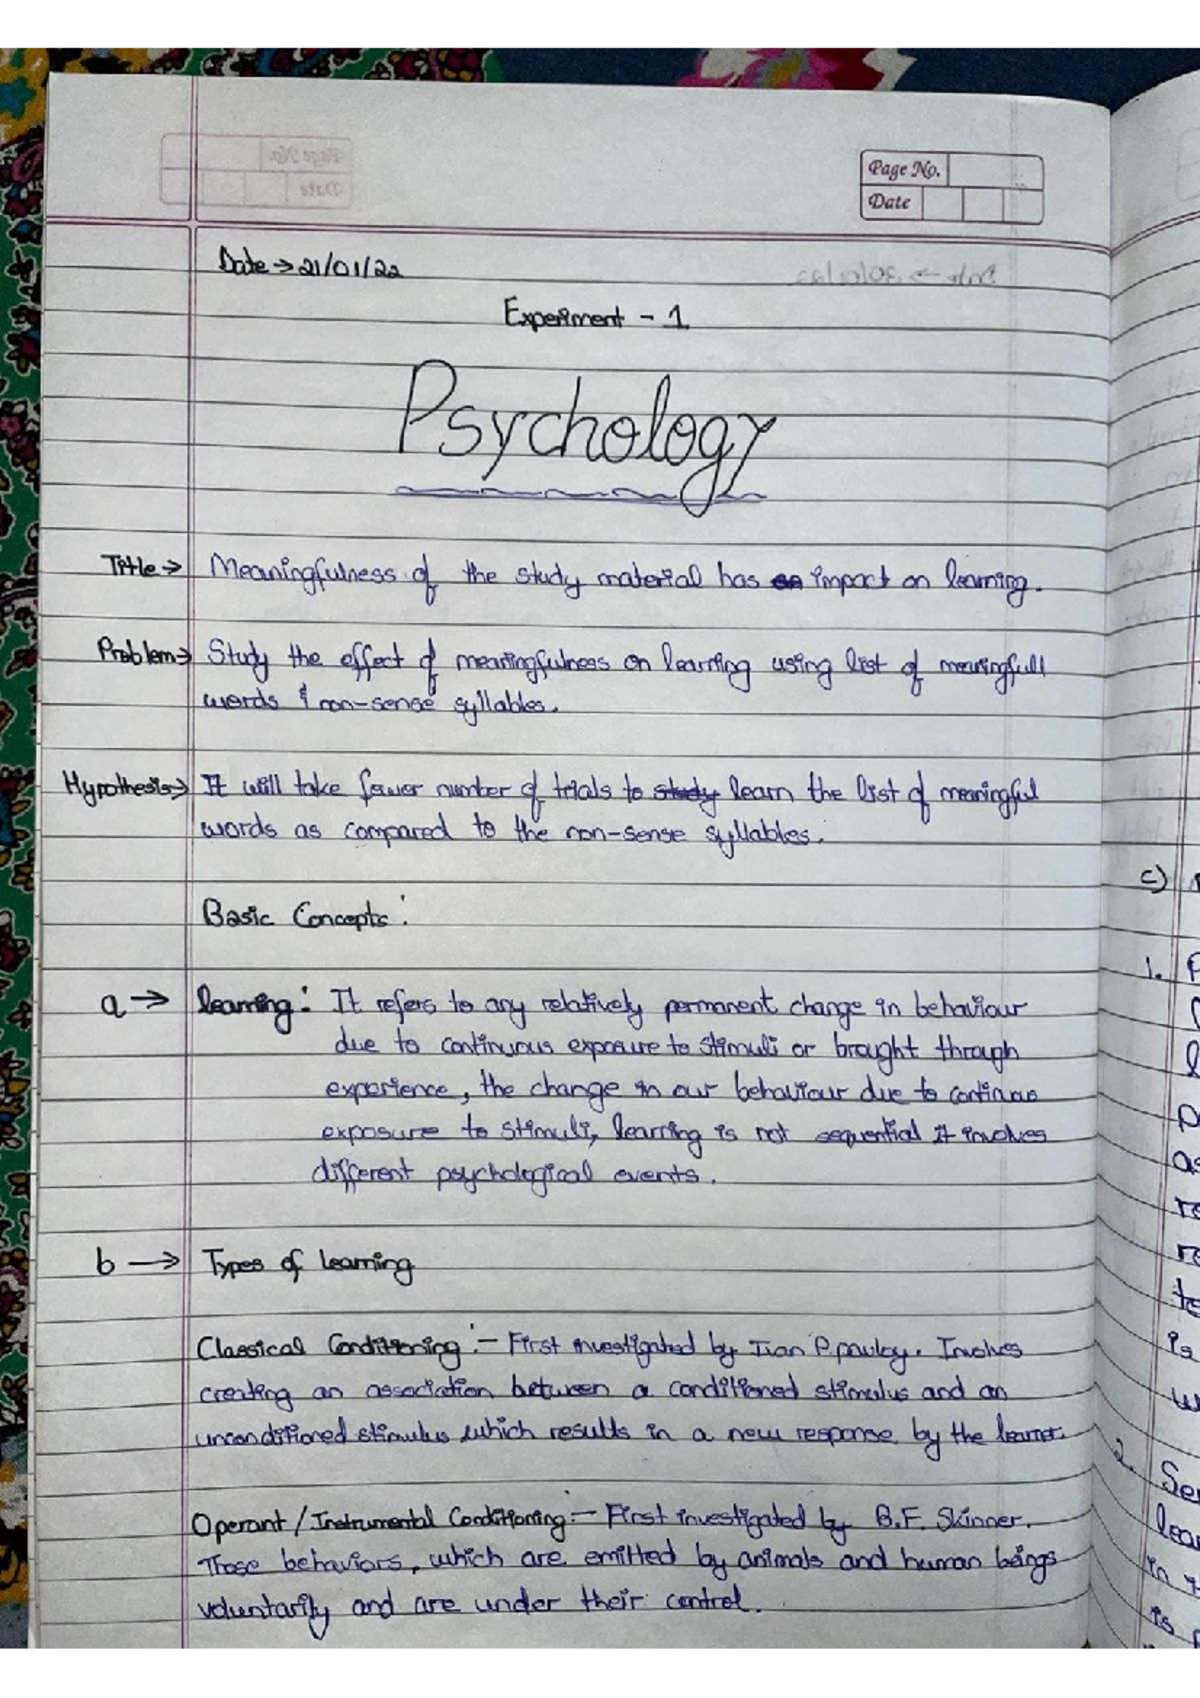 Page No.
Date
Date → 21/01/22
Experiment - 1
Psychology
Title → Meaningfulness of the study material has an impact on learning.
Problem → Study the effect of meaningfulness on learning using list of meaningfull
words & non-sense syllables.
Hypothesis → It will take fewer number of trials to study learn the list of meaningful
words as compared to the non-sense syllables.
Basic Concepts:
a → learning: It refers to any relatively permanent change in behaviour
due to continuous exposure to stimuli or brought through
experience, the change in our behaviour due to continous
exposure to stimuli, learning is not sequential it involves
different psychological events.
b → Types of learning
Classical Conditioning :- First investigated by Ivan P. pavlov. Involves
creating an association between a conditioned stimulus and an
unconditioned stimulus which results in a new response by the learner.
Operant / Instrumental Conditioning :- First investigated by B.F. Skinner.
Those behaviors, which are emitted by animals and human beings
voluntarily and are under their control.
c)
1.
2.